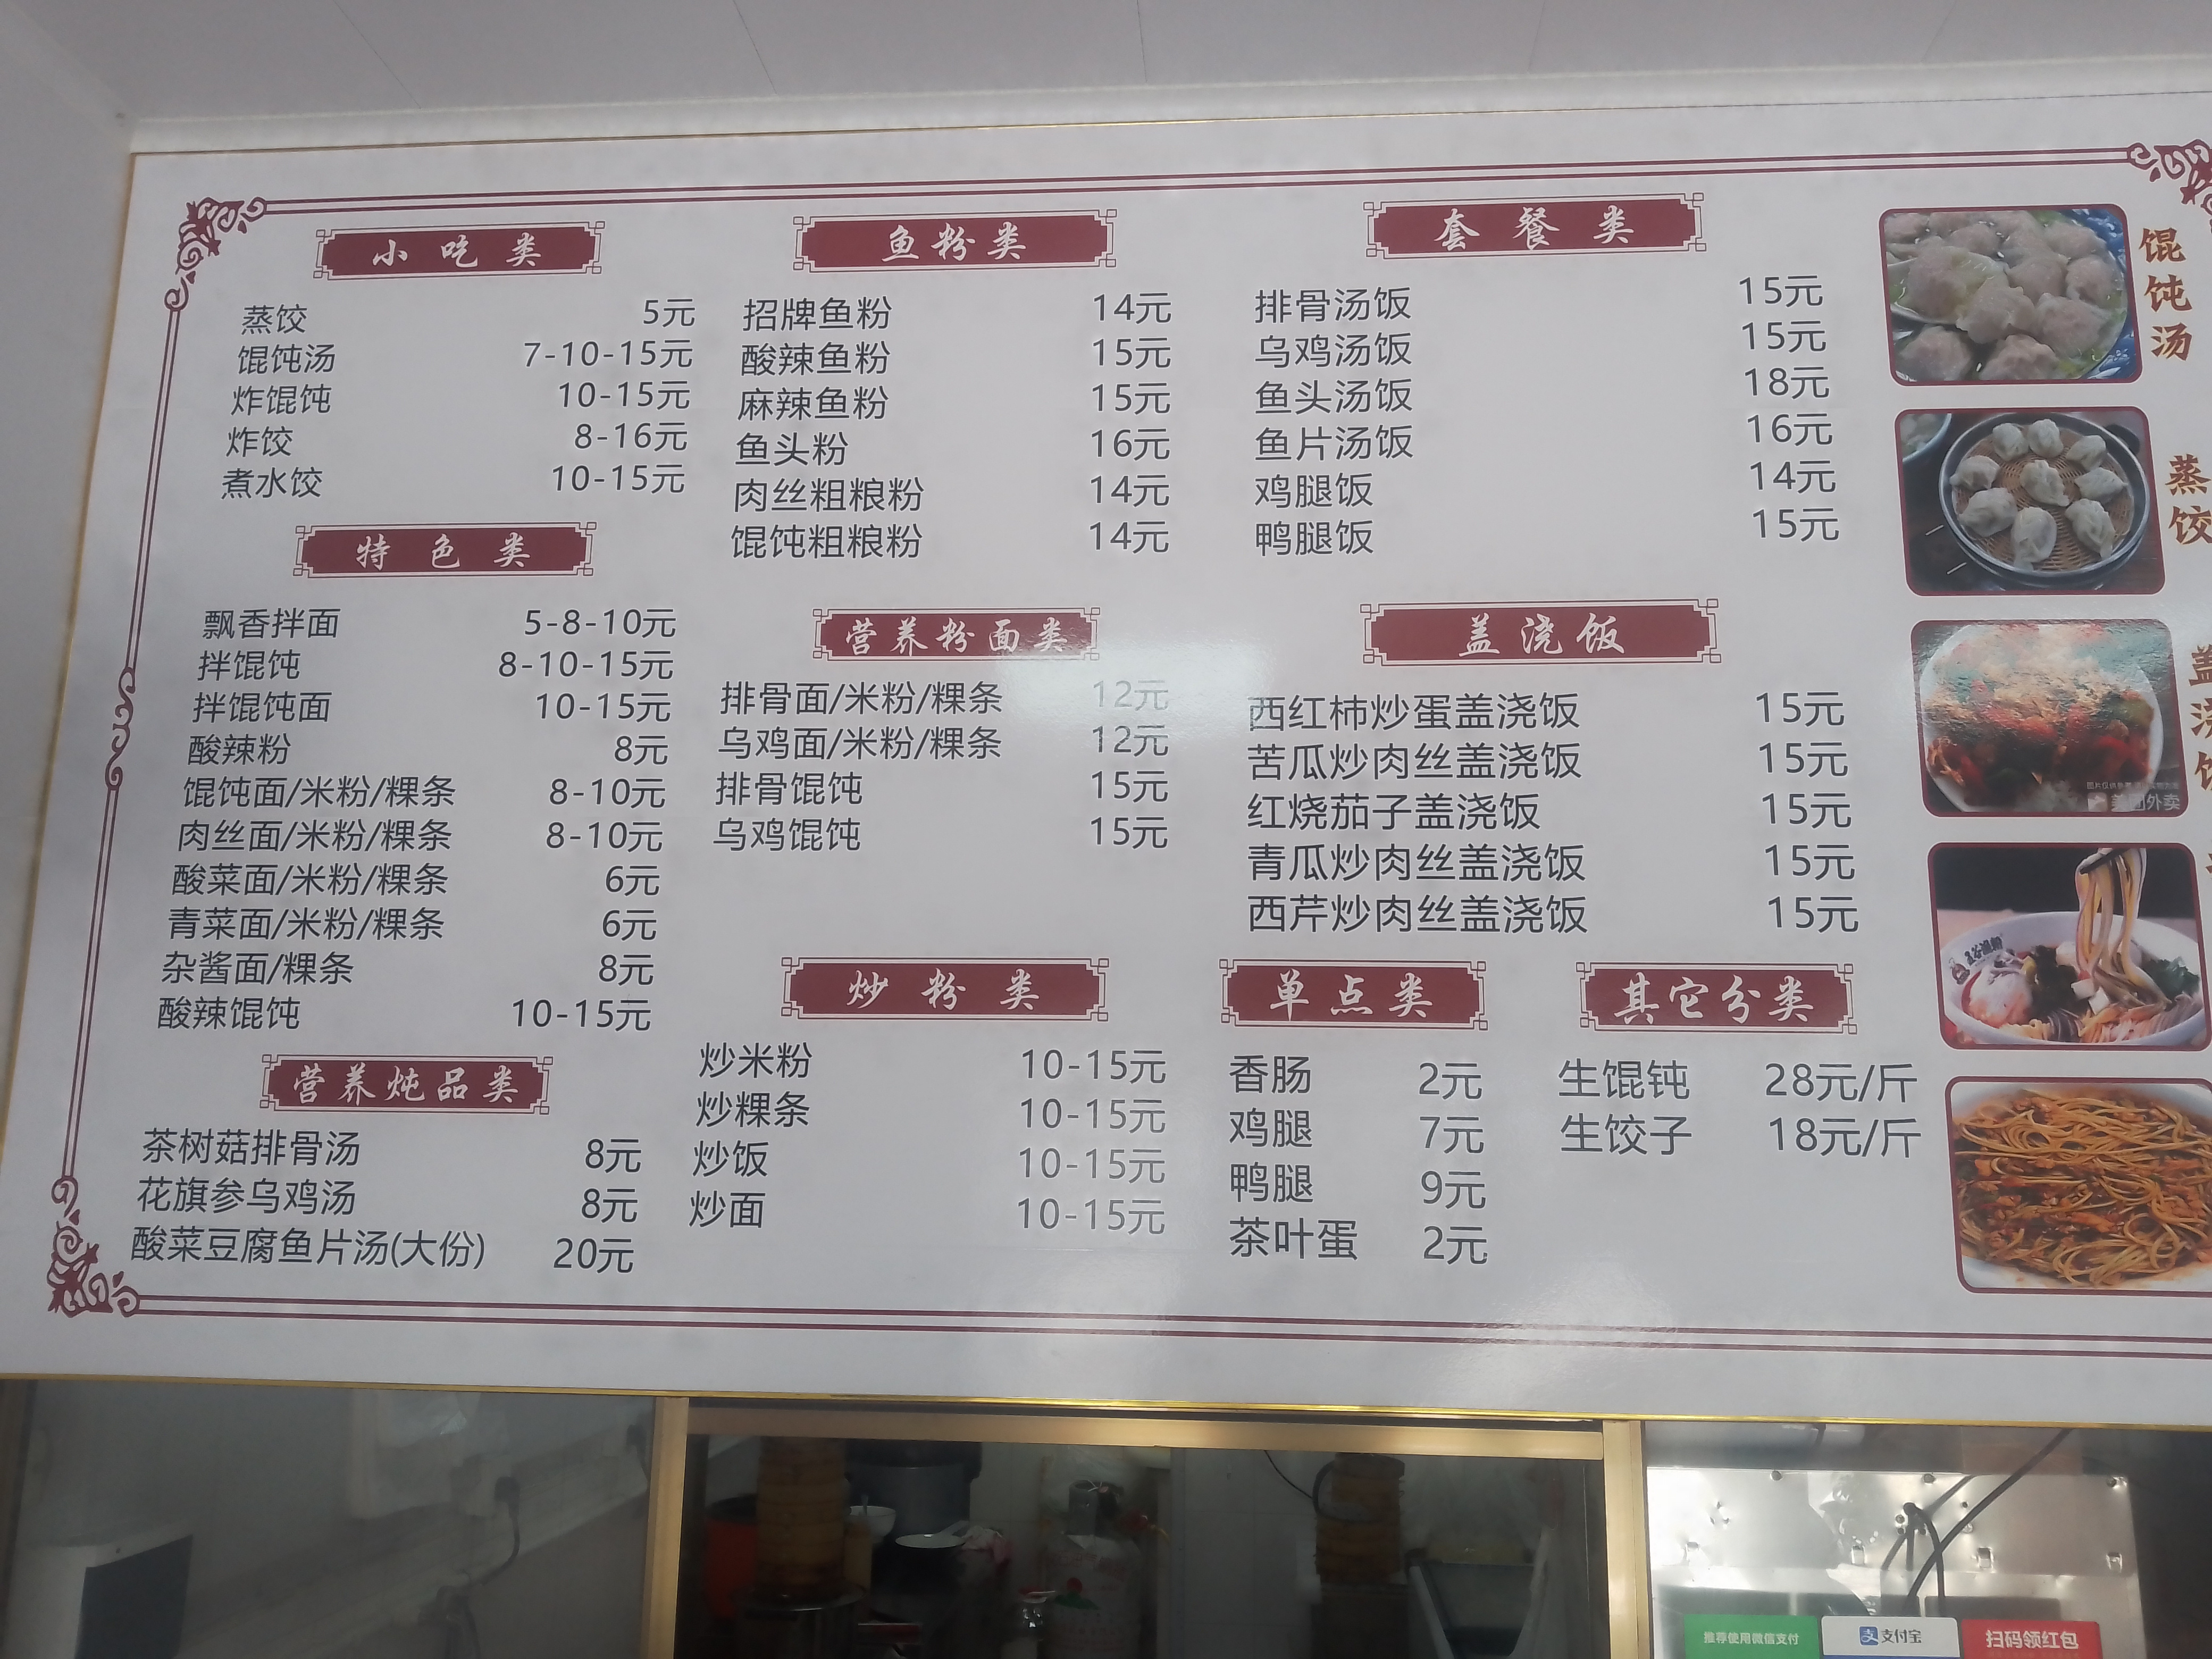 小吃类
蒸饺 5元
馄饨汤 7-10-15元
炸馄饨 10-15元
炸饺 8-16元
煮水饺 10-15元
特色类
飘香拌面 5-8-10元
拌馄饨 8-10-15元
拌馄饨面 10-15元
酸辣粉 8元
馄饨面/米粉/粿条 8-10元
肉丝面/米粉/粿条 8-10元
酸菜面/米粉/粿条 6元
青菜面/米粉/粿条 6元
杂酱面/粿条 8元
酸辣馄饨 10-15元
营养炖品类
茶树菇排骨汤 8元
花旗参乌鸡汤 8元
酸菜豆腐鱼片汤(大份) 20元
鱼粉类
招牌鱼粉 14元
酸辣鱼粉 15元
麻辣鱼粉 15元
鱼头粉 16元
肉丝粗粮粉 14元
馄饨粗粮粉 14元
营养粉面类
排骨面/米粉/粿条 12元
乌鸡面/米粉/粿条 12元
排骨馄饨 15元
乌鸡馄饨 15元
炒粉类
炒米粉 10-15元
炒粿条 10-15元
炒饭 10-15元
炒面 10-15元
套餐类
排骨汤饭 15元
乌鸡汤饭 15元
鱼头汤饭 18元
鱼片汤饭 16元
鸡腿饭 14元
鸭腿饭 15元
盖浇饭
西红柿炒蛋盖浇饭 15元
苦瓜炒肉丝盖浇饭 15元
红烧茄子盖浇饭 15元
青瓜炒肉丝盖浇饭 15元
西芹炒肉丝盖浇饭 15元
单点类
香肠 2元
鸡腿 7元
鸭腿 9元
茶叶蛋 2元
其它分类
生馄钝 28元/斤
生饺子 18元/斤
馄饨汤
蒸饺
盖浇饭
美团外卖
推荐使用微信支付
支付宝
扫码领红包